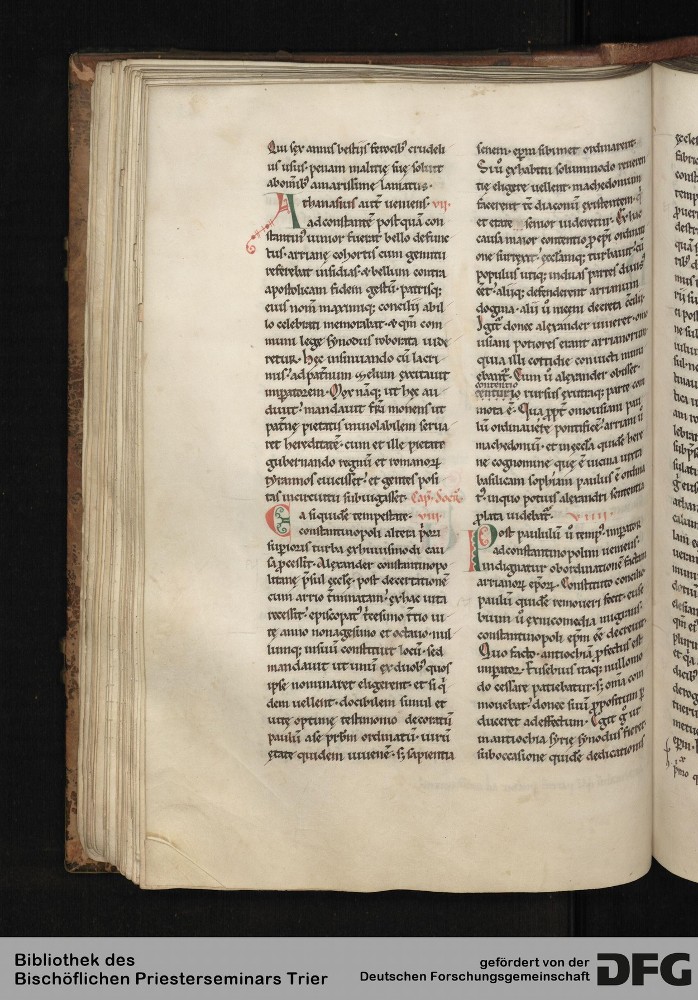 Qui sex annis bestiis ferocib; crudeli
us usus· penam malitię suę soluit
abomīb; amarissime laniatus·
Athanasius autē ueniens· vii·
ad constantē postquā con
stantin; iunior fuerat bello defunc
tus· arrianę cohortis cum gemitu
referebat insidias· & bellum contra
apostolicam fidem gestū· patrisq;
eius nom̄ maximiq; concilii· ab il
lo celebrati memorabat· & qm̄ com
muni lege synodus roborata uide
retur· Hęc insinuando cū lacri
mis· ad patnum zelum excitauit
imperatorem· Mox nāq; ut hęc au
diuit· mandauit frī monens ut
patnę pietatis inuiolabilem serua
ret hereditatē· cum et ille pietate
gubernando regnū et romanorꝝ
tyrannos euicisset· et gentes posi
tas in circuitu subiugasset· Cap. Socīs.
Ea siquidē tempestate· viii·
constantinopoli altera p̄ori
superioris turba ex huiusmodi cau
sa ꝑcessit· Alexander constantinopo
litanę p̄sul ęcclę· post decertationē
cum arrio t̄minatam· ex hac uita
recessit· episcopat; t̄cesimo t̄tio ui
tę anno nonagesimo et octauo· nul
lumq; in suū constituit locū· sed
mandauit ut unū ex duob; quos
ipse nominaret eligerent· et si q̄
dem uellent· docibilem simul et
uitę optimę testimonio decoratū
paulū a se p̄rbm̄ ordinatū· uirū
ętate quidem iuuenē· s; sapientia
senem· ep̄m sibimet ordinarent·
Si ū ex habitu solummodo reueren
tię eligere uellent· machedonium
facerent tē diaconū existentem· q̄
et etate senior uideretur· Ex hac
causa maior contentio ꝑ ep̄i ordinati
one surrexit· ęcclamq; turbauit· cū
populus utiq; in duas partes diuis;
eēt· aliq; defenderent arrianum
dogma· alii ū niceni decreta cōcilii·
Igit̄ donec alexander uiueret· omo
usiani potiores erant arrianorum·
quia illi cottidie conuicta minu
ebant̄· Cum ū alexander obisset·
contentio
centurio rursus exutraq; parte com
mota ē· Qua ꝓpt̄ omousiani pau
lū ordinauere pontificē· arriani ū
machedoniū· et in ęccła quidē here
ne cognomine que ē uicina iuxta
basilicam sophiam paulus ē ordina
t;· in quo potius alexandri sententia
p̄lata uidebat̄· viiii·
Post paululū ū temp;· imperator
ad constantinopolim ueniens·
indignatur ob ordinationē factam
arrianorꝝ ep̄orꝝ· Constituto concilio
paulū quidē remoueri fecit· euse
bium ū ex nicomedia migrans·
constantinopoli· ep̄m eē decreuit·
Quo facto· antiochiā ꝓfectus est
imperator· Eusebius itaq; nullomo
do cessare patiebatur· s; omīa com
mouebat· donec suū ꝓpositum ꝑ
duceret ad effectum· Egit g̊ ut
in antiochia syrię synodus fieret·
sub occasione quidē dedicationis
Bibliothek des
Bischöflichen Priesterseminars Trier
gefördert von der
Deutschen Forschungsgemeinschaft
DFG